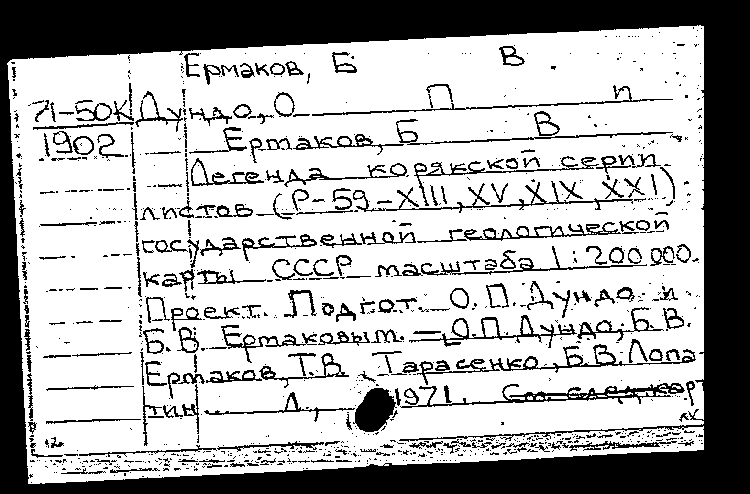 Ермаков, Б В.
71-50К Дундо, О П п
1902 Ермаков, Б В.
Легенда корякской серии
листов (Р-59-XIII, XV, XIX, XXI)
государственной геологической
карты СССР масштаба 1:200 000.
Проект. Подгот. О.П. Дундо и
Б.В. Ермаковым. – О.П. Дундо, Б.В.
Ермаков, Т.В. Тарасенко, Б.В. Лопа-
тин. Л., 1971. См. след. карт